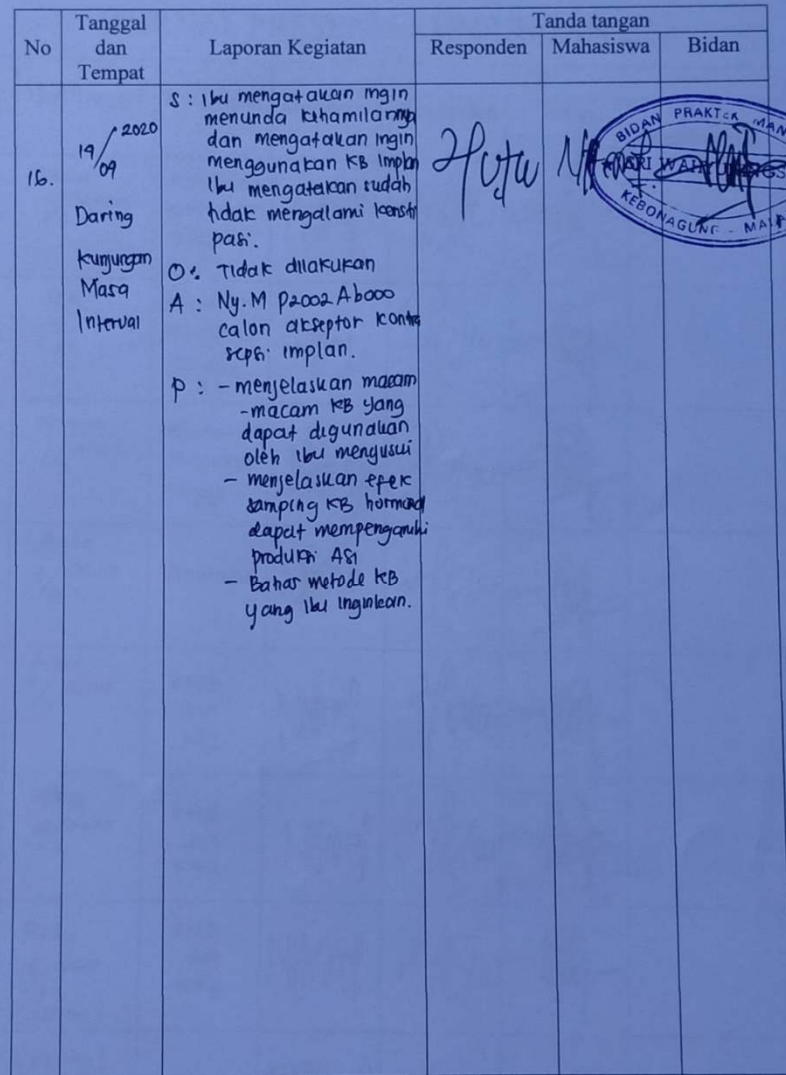 No
Tanggal
dan
Tempat
Laporan Kegiatan
Tanda tangan
Responden
Mahasiswa
Bidan
16.
19/09 2020
Daring
kunjungan
Masa
Interval
S : Ibu mengatakan ingin
menunda kehamilannya
dan mengatakan ingin
menggunakan KB Implan
Ibu mengatakan sudah
tidak mengalami konsti
pasi.
O : Tidak dilakukan
A : Ny. M P2002 Ab000
calon akseptor kontra
sepsi implan.
P : - menjelaskan macam
-macam KB yang
dapat digunakan
oleh ibu mengusui
- menjelaskan efek
samping KB hormonal
dapat mempengaruhi
produksi ASI
- Bahas metode KB
yang ibu inginkan.
BIDAN PRAKTEK MAN
KEBONAGUNG - MALA